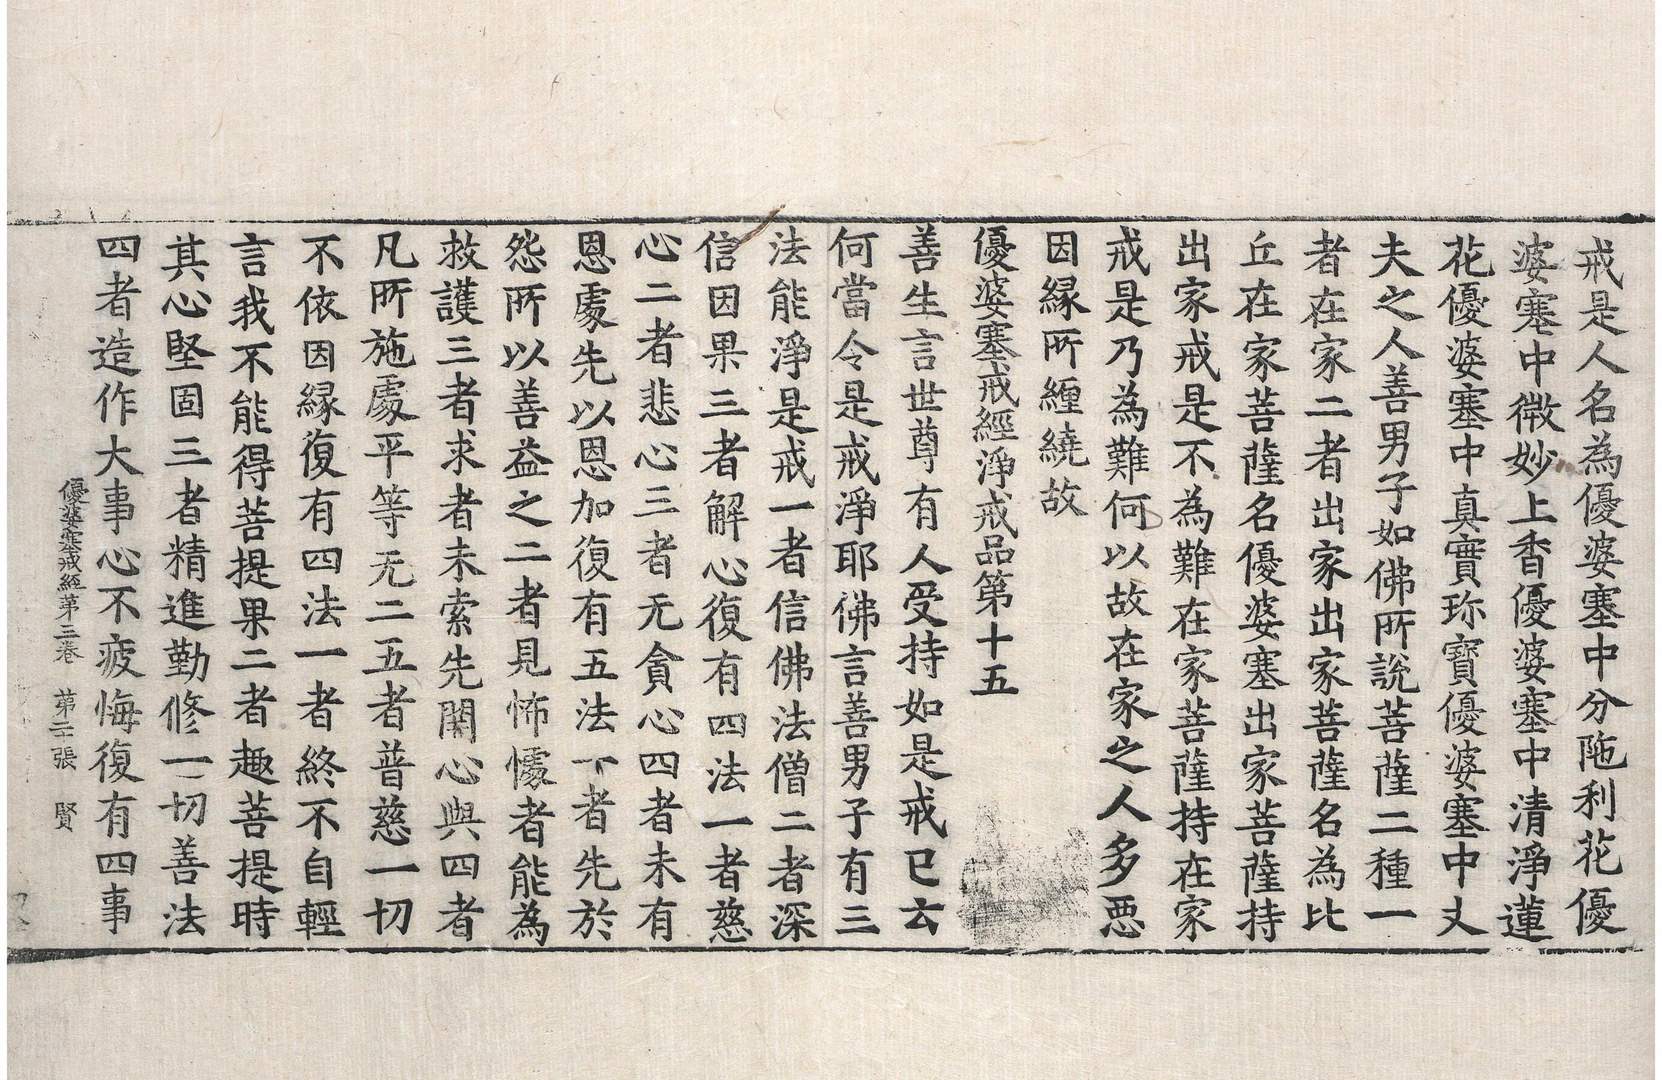 戒是人名為優婆塞中分陁利花優
婆塞中微妙上香優婆塞中清淨蓮
花優婆塞中真實珎寶優婆塞中丈
夫之人善男子如佛所說菩薩二種一
者在家二者出家出家菩薩名為比
丘在家菩薩名優婆塞出家菩薩持
出家戒是不為難在家菩薩持在家
戒是乃為難何以故在家之人多惡
因緣所纏繞故
優婆塞戒經淨戒品第十五
善生言世尊有人受持如是戒已云
何當令是戒淨耶佛言善男子有三
法能淨是戒一者信佛法僧二者深
信因果三者解心復有四法一者慈
心二者悲心三者无貪心四者未有
恩處先以恩加復有五法一者先於
怨所以善益之二者見怖懅者能為
救護三者求者未索先開心與四者
凡所施處平等无二五者普慈一切
不依因緣復有四法一者終不自輕
言我不能得菩提果二者趣菩提時
其心堅固三者精進勤修一切善法
四者造作大事心不疲悔復有四事
優婆塞戒經第三卷 第二張 賢